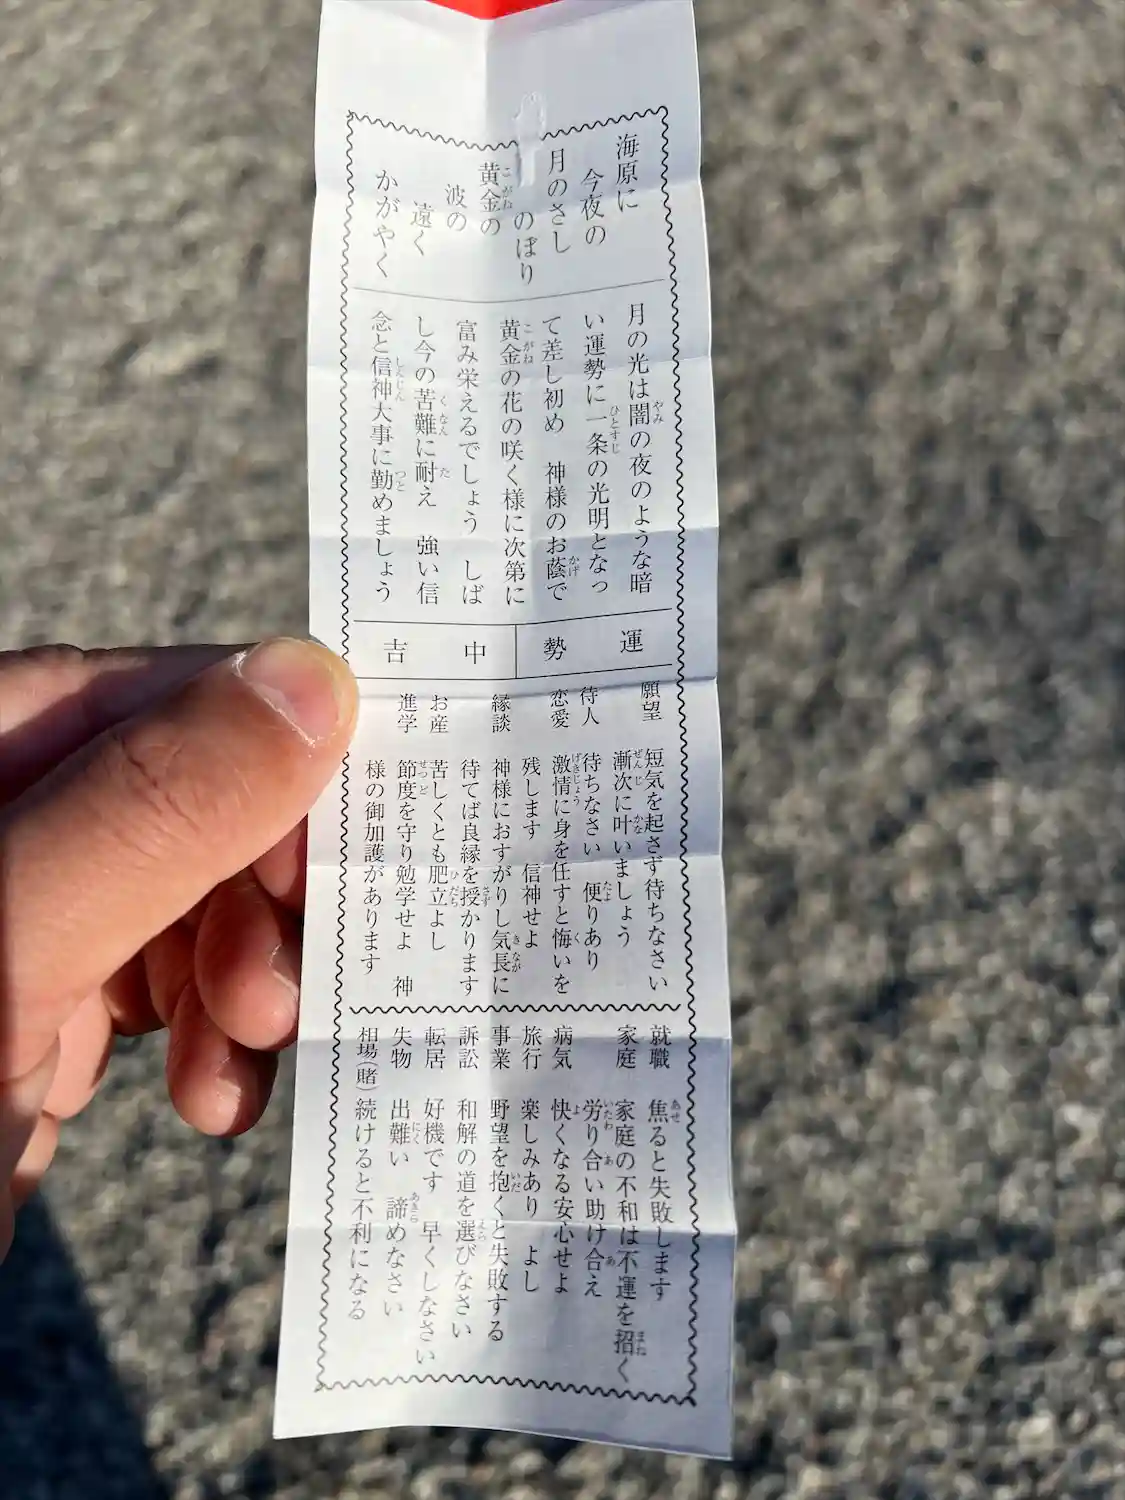 海原に
今夜の
月のさし
のぼり
黄金の
波の
遠く
かがやく
月の光は闇の夜のような暗
い運勢に一条の光明となっ
て差し初め　神様のお蔭で
黄金の花の咲く様に次第に
富み栄えるでしょう　しば
し今の苦難に耐え　強い信
念と信神大事に勤めましょう
運勢　中吉
願望　短気を起さず待ちなさい
漸次に叶いましょう
待人　待ちなさい　便りあり
恋愛　激情に身を任すと悔いを
残します　信神せよ
縁談　神様におすがりし気長に
待てば良縁を授かります
お産　苦しくとも肥立よし
進学　節度を守り勉学せよ　神
様の御加護があります
就職　焦ると失敗します
家庭　家庭の不和は不運を招く
労り合い助け合え
病気　快くなる安心せよ
旅行　楽しみあり　よし
事業　野望を抱くと失敗する
訴訟　和解の道を選びなさい
転居　好機です　早くしなさい
失物　出難い　諦めなさい
相場(賭)　続けると不利になる